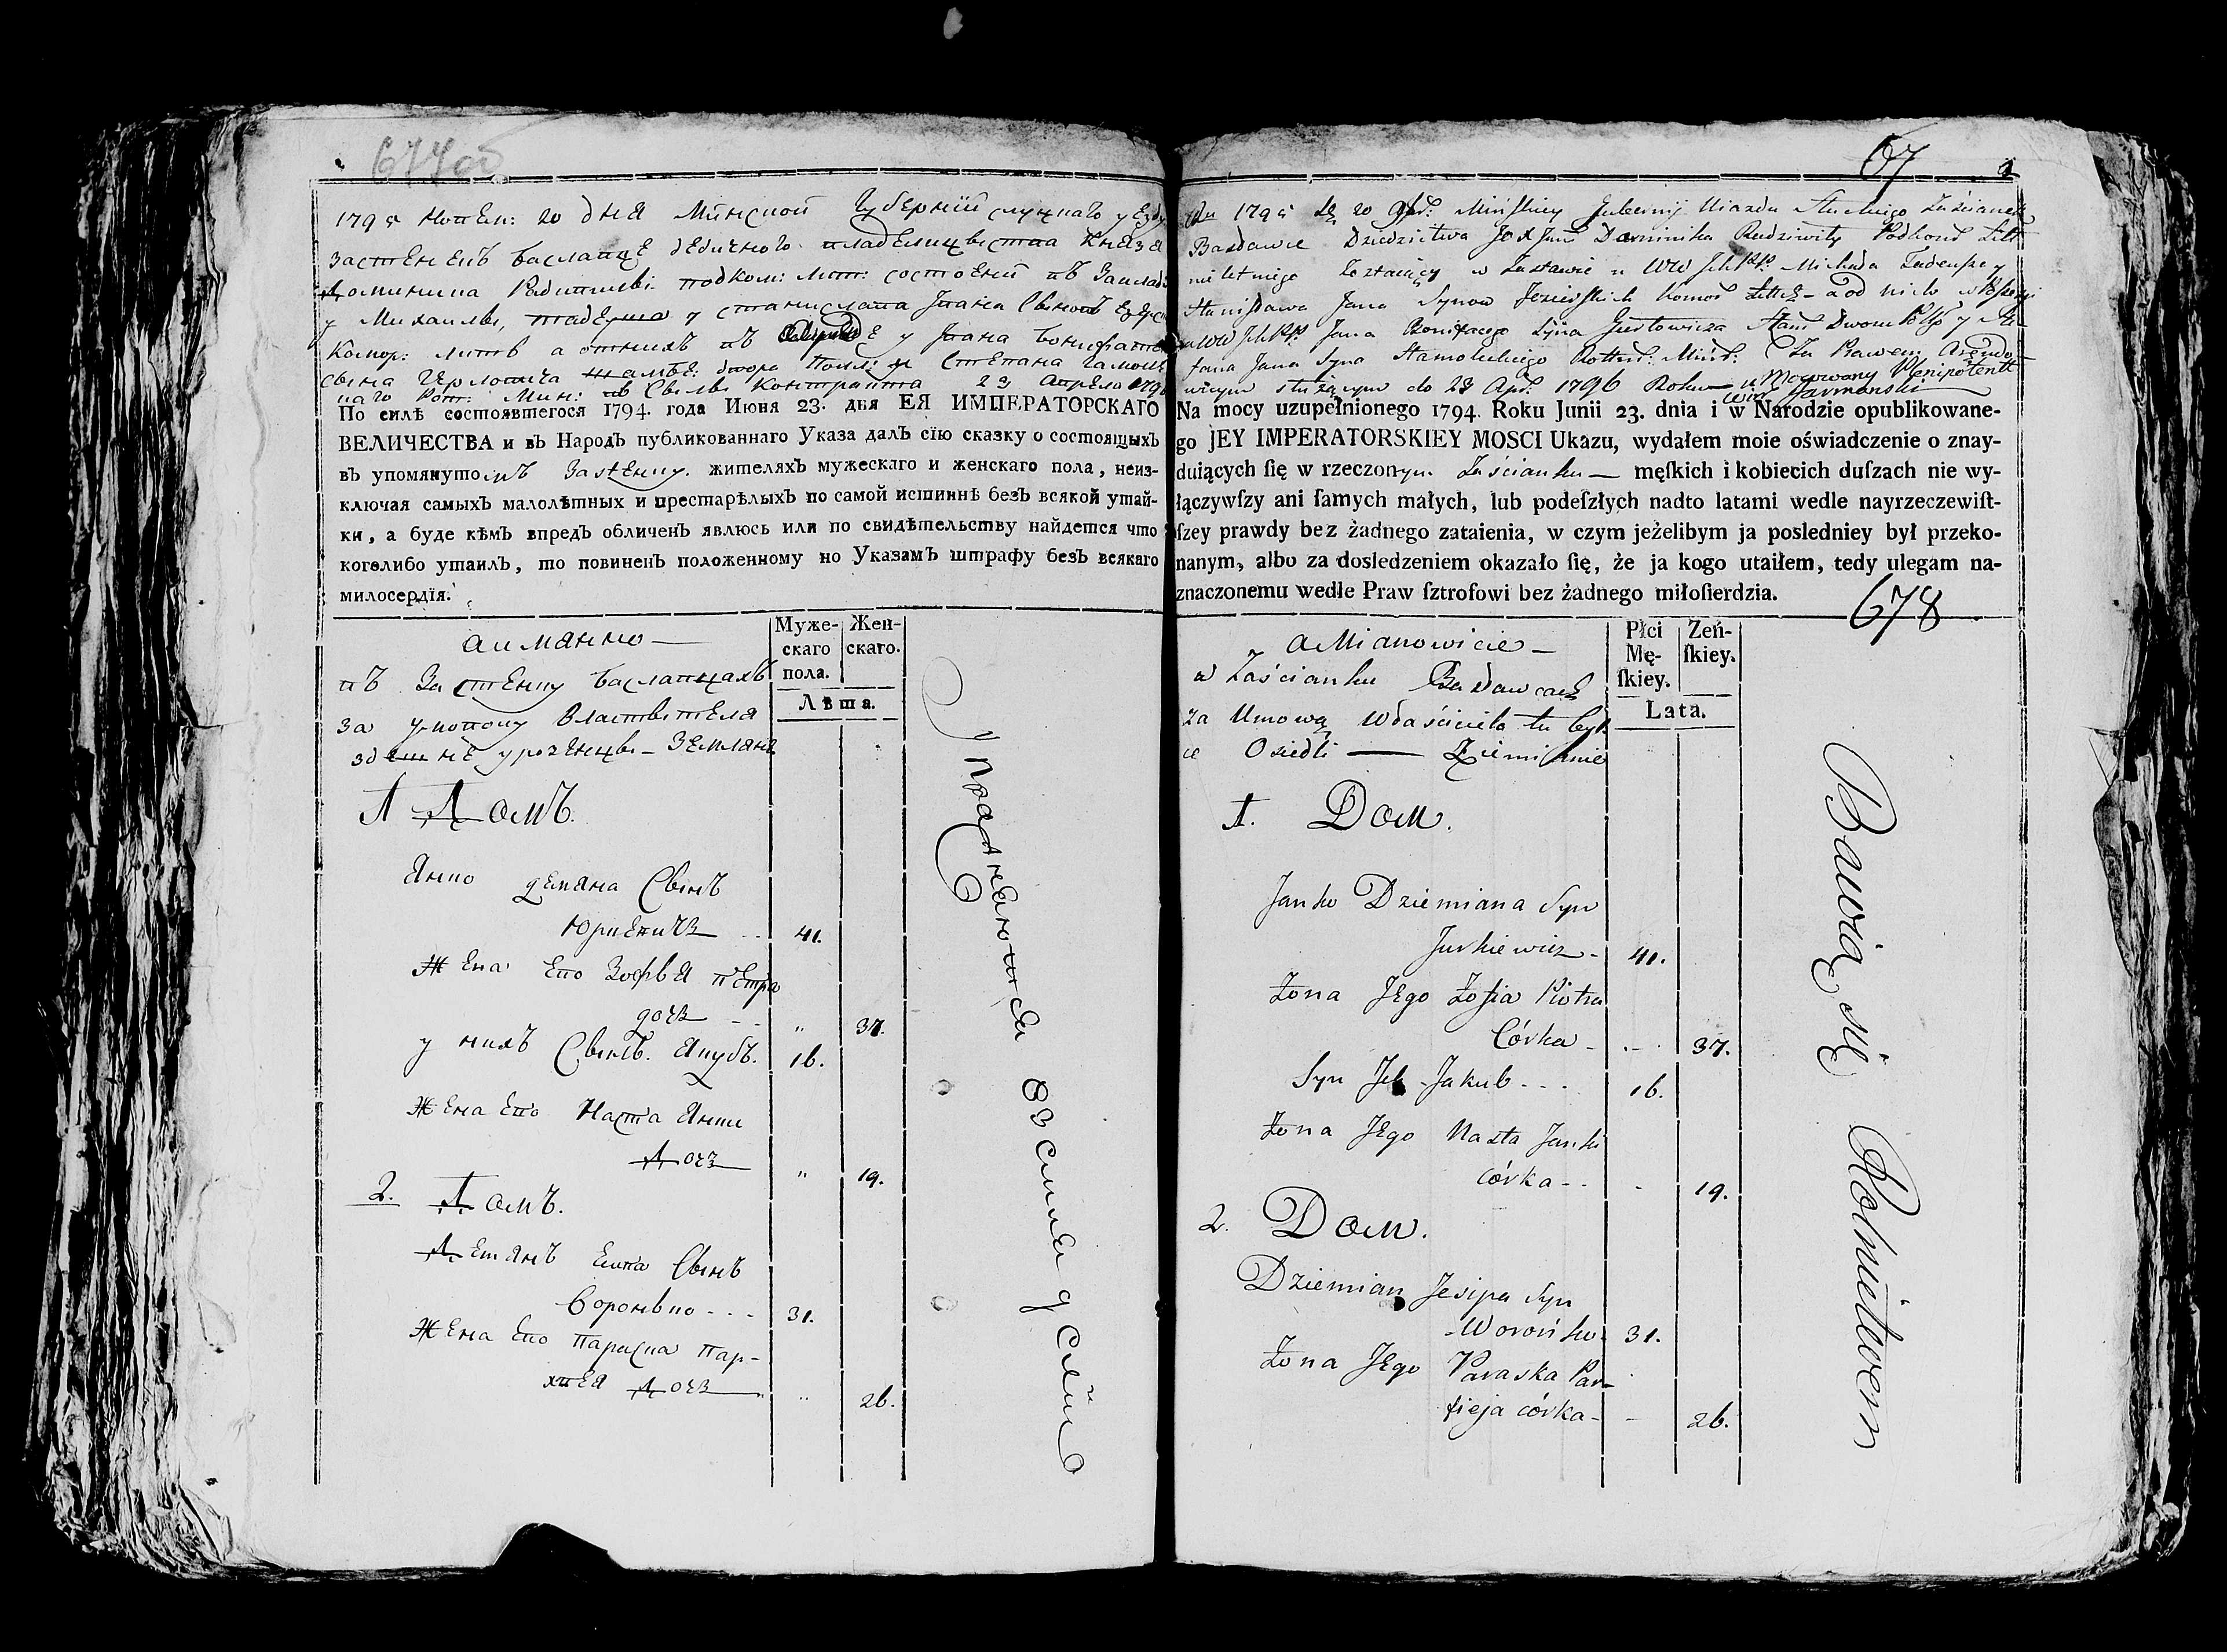 677об.
1795 Ноѣбп: 20 дня Минской Губернiи слуцкаго уезду
застѣнекъ Баславце дедичного владѣлицвства Князя
Доминика Радзивилы подком: лит: состоеній въ Закладе
у Михаила, тадеуша у станислава Iвана Сыновъ
Комор: литв а отнихъ въ у Iвана Бонифатего
Сына двора Степана
наго Рот: Мин: въ Силы Контракта 23 Апреля 1796
По силѣ состоявшегося 1794. года Июня 23. дня ЕЯ ИМПЕРАТОРСКАГО
ВЕЛИЧЕСТВА и въ Народъ публикованнаго Указа далъ сїю сказку о состоящыхъ
въ упомянутомъ Застенку. жителяхъ мужескаго и женскаго пола, неиз-
ключая самыхъ малолѣтныхъ и престарѣлыхъ по самой истиннѣ безъ всякой утай-
ки, а буде кѣмъ впредъ обличенъ явлюсь или по свидѣтельству найдется что
коголибо утаилъ, то повиненъ положенному по Указамъ штрафу безъ всякаго
милосердїя.
аимянно —
въ Застенку Баславцахъ
за умовою Властвителя
здешнѣ уроченцы — Земляне
Муже-
скаго
пола.
Жен-
скаго.
Лѣта.
1 Домъ.
Янко демяна Сынъ
Юркевичъ - - 41.
Жена Ево Зофья Петра
дочъ - - " 37.
у нихъ Сынъ. Якубъ. 16.
Жена Ево Наста Янки
Дочъ " 19.
2. Домъ.
Демянъ Есипа Сынъ
Воронько - - - 31.
Жена Ево Параска Пар-
хвея Дочъ " 26.
упражняются
67
1795 20 9br: Mińskiey Gubernij Uiazdu Słuckiego Zaścianek
Basławce Dziedzictwa JOX Jmci Dominika Radziwiły Podkom Litt
nieletniego Zostaiący w Zastawie u WW Jchpp: Michała Tadeusza y
Stanisława Jana Synow Jezierskich Komor Littt - a od nich w
u WW Jchpp: Jana Bonifacego Syna Dwom Polsk y
fana Jana Syna Rottm: Mińs: Za Prawem Arendo-
wnym służącym do 23 Apr: 1796 Roku umocowany Plenipotent
Jarmoński
Na mocy uzupełnionego 1794. Roku Junii 23. dnia i w Narodzie opublikowane-
go JEY IMPERATORSKIEY MOSCI Ukazu, wydałem moie oświadczenie o znay-
duiących ſię w rzeczonym Zaścianku — męſkich i kobiecich duſzach nie wy-
łączywſzy ani ſamych małych, lub podeſzłych nadto latami wedle nayrzeczewiſt-
ſzey prawdy bez żadnego zataienia, w czym jeżelibym ja posledniey był przeko-
nanym, albo za dosledzeniem okazało ſię, że ja kogo utaiłem, tedy ulegam na-
znaczonemu wedle Praw ſztrofowi bez żadnego miłoſierdzia.
678
aMianowicie —
w Zaścianku Basławcach
za Umową Właściciela tu byt
ie Osiedli — Ziemianie
Płci
Mę-
ſkiey.
Żeń-
ſkiey.
Lata.
1. Dom.
Janko Dziemiana Syn
Jurkiewicz - 41.
Żona JEgo Zofia Piotra
Córka - - 37.
Syn Jch Jakub - - - 16.
Żona JEgo Nasta Janki
córka - - - 19.
2. Dom.
Dziemian Jesipa Syn
Worońko 31.
Żona JEgo Paraska Par-
fieja córka - - 26.
Bawią się Rolnictwem